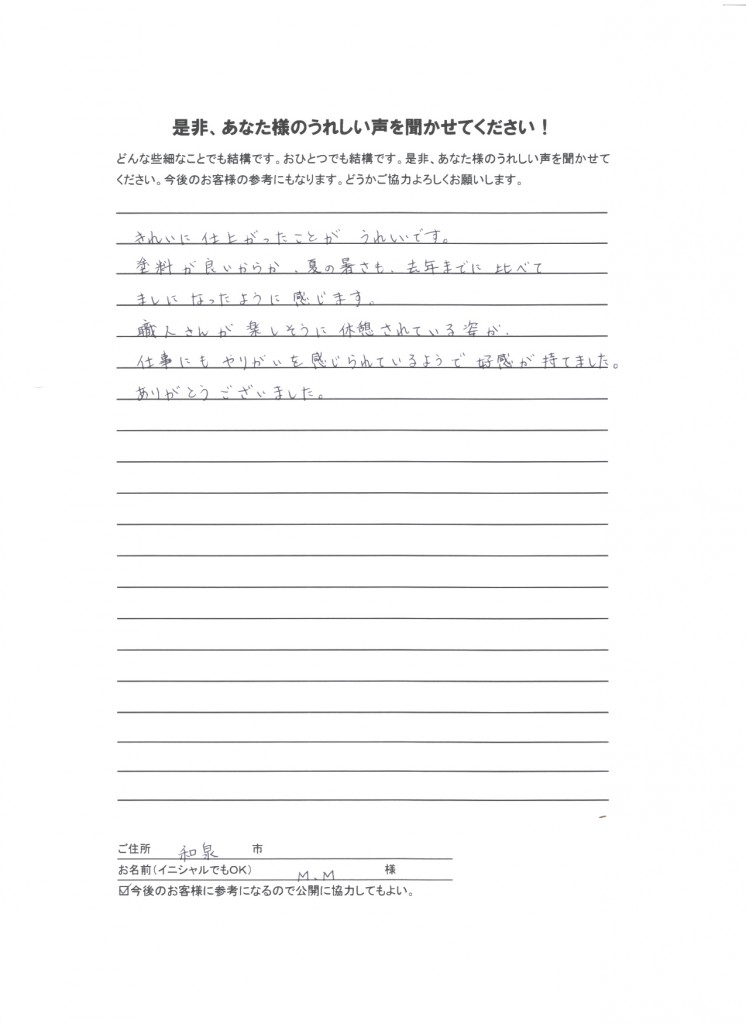 是非、あなた様のうれしい声を聞かせてください！
どんな些細なことでも結構です。おひとつでも結構です。是非、あなた様のうれしい声を聞かせて
ください。今後のお客様の参考にもなります。どうかご協力よろしくお願いします。
きれいに仕上がったことが うれしいです。
塗料が良いからか、夏の暑さも、去年までに比べて
ましになったように感じます。
職人さんが楽しそうに休憩されている姿が、
仕事にもやりがいを感じられているようで好感が持てました。
ありがとうございました。
ご住所 和泉 市
お名前(イニシャルでもOK) M.M 様
☑今後のお客様に参考になるので公開に協力してもよい。